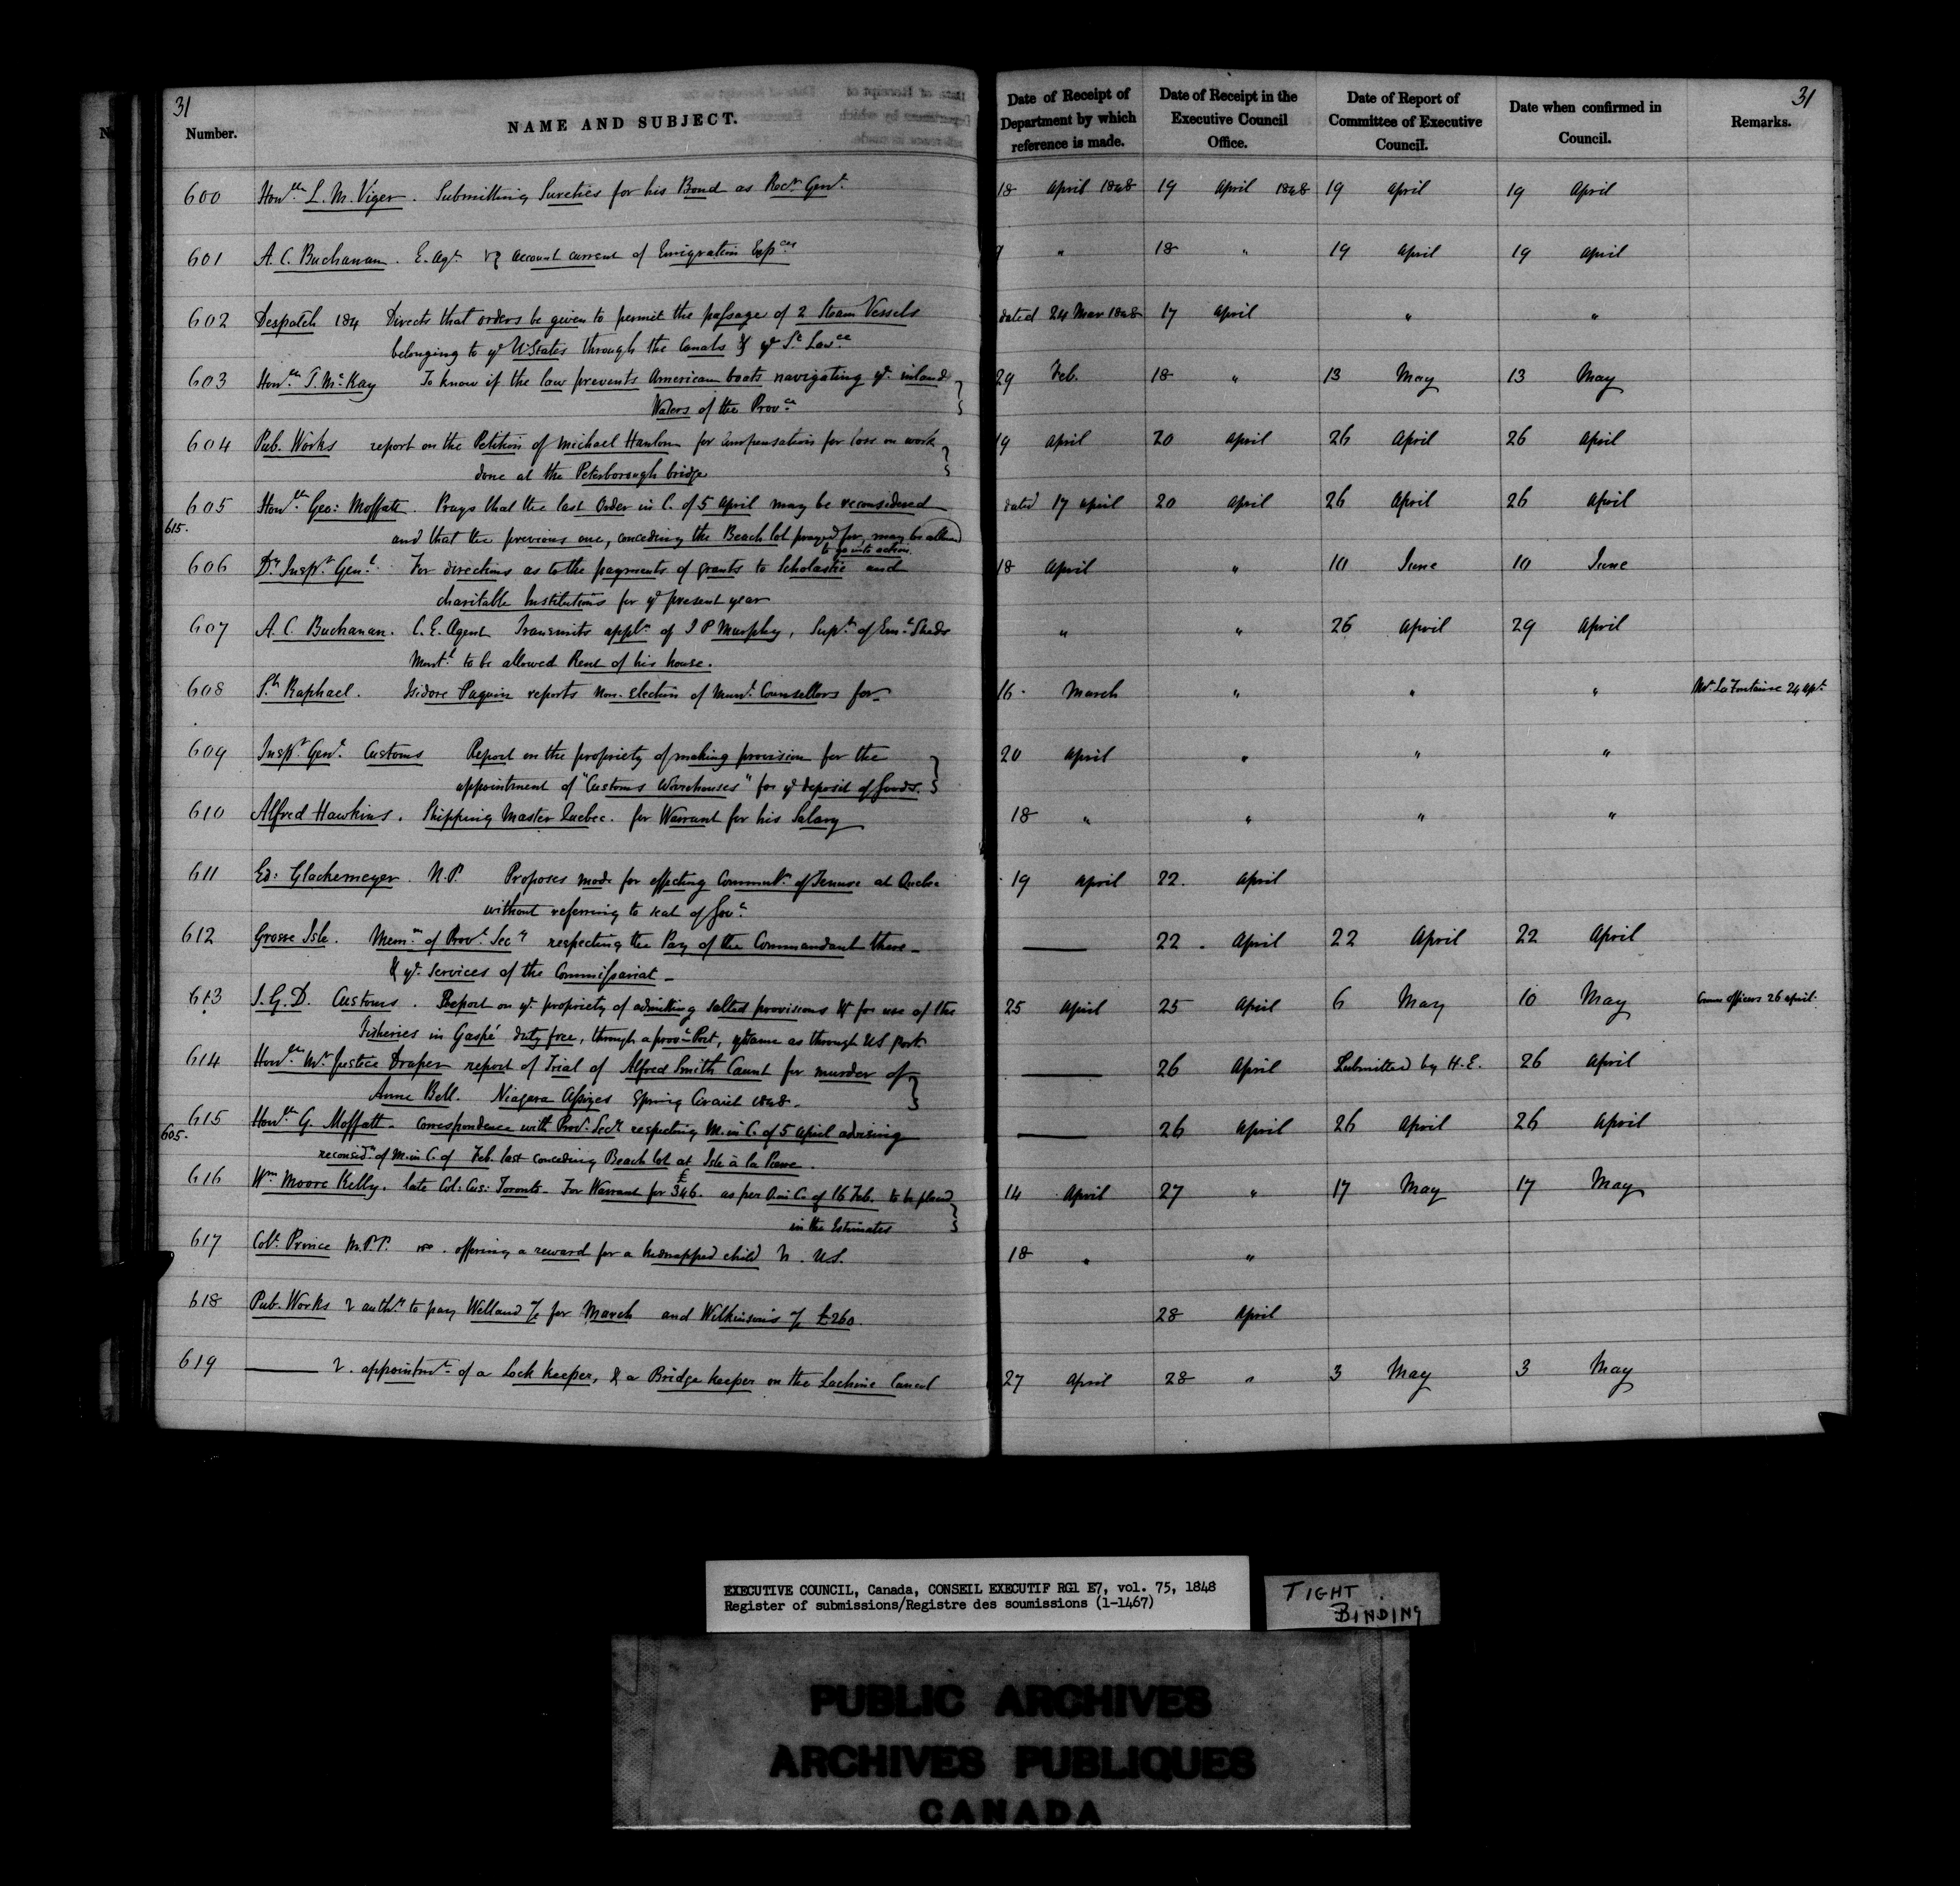 31
31
Number.
NAME AND SUBJECT.
Date of Receipt of Department by which reference is made.
Date of Receipt in the Executive Council Office.
Date of Report of Committee of Executive Council.
Date when confirmed in Council.
Remarks.
600 Honble L. M. Viger. Submitting Sureties for his Bond as Recr Genl. 18 April 1848 19 April 1848 19 April 19 April
601 A. C. Buchanan. E. Agt account current of Emigration Expces 9 " 18 " 19 April 19 April
602 Despatch 184 Directs that orders be given to permit the passage of 2 Steam Vessels dated 24 Mar 1848 17 April " "
belonging to ye U States through the Canals & ye St Lawce
603 Honble T. McKay To know if the law prevents American boats navigating ye inland 29 Feb. 18 " 13 May 13 May
Waters of the Provce
604 Pub. Works report on the Petition of Michael Hanlon for compensation for loss on work 19 April 20 April 26 April 26 April
done at the Peterborough bridge
605 Honble Geo: Moffatt. Prays that the last Order in C. of 5 April may be reconsidered dated 17 April 20 April 26 April 26 April
615. and that the previous one, conceding the Beach lot prayed for, may be allowed
to go into action.
606 Dy Inspr Genl. For directions as to the payments of grants to Scholastic and 18 April " 10 June 10 June
charitable Institutions for ye present year
607 A. C. Buchanan. C. E. Agent Transmits appln of J P Murphy, Supt of Emt Sheds " " 26 April 29 April
Montl to be allowed Rent of his house.
608 St Raphael. Isidore Paquin reports Non-election of Munl Counsellors for 16 March " " " Mr LaFontaine 24 Apl
609 Inspr Genl Customs Report on the propriety of making provision for the 20 April " " "
appointment of "Customs Warehouses" for ye deposit of Goods.
610 Alfred Hawkins. Shipping Master Quebec. for Warrant for his Salary 18 " " " "
611 Ed: Glackemeyer N.P. Proposes mode for effecting Commutn of Tenure at Quebec 19 April 22. April
without referring to seat of Govt
612 Grosse Isle. Memm of Provl Secy respecting the Pay of the Commandant there 22. April 22 April 22 April
& ye services of the Commissariat
613 I. G. D. Customs. Report on ye propriety of admitting salted provisions for use of the 25 April 25 April 6 May 10 May Crown officers 26 April
Fisheries in Gaspé duty free, through a provl Port, same as through US port
614 Honble Mr Justice Draper report of Trial of Alfred Smith Caunt for murder of 26 April Submitted by H.E. 26 April
Anne Bell. Niagara Assizes Spring Circuit 1848.
615 Honble G. Moffatt. Correspondence with Provl Secy respecting M. in C. of 5 April advising 26 April 26 April 26 April
605. reconsidn of M. in C. of Feb. last conceding Beach lot at Isle à la Pierre.
616 Wm Moore Kelly. late Col: Cus: Toronto. For Warrant for £346. as per O. in C. of 16 Feb. to be placed 14 April 27 " 17 May 17 May
in the Estimates
617 Coll Prince M.P.P. offering a reward for a kidnapped child U.S. 18 " "
618 Pub. Works authy to pay Welland for March and Wilkinson's £260. 28 April
619 appointmt of a Lock keeper, & a Bridge keeper on the Lachine Canal 27 April 28 " 3 May 3 May
EXECUTIVE COUNCIL, Canada, CONSEIL EXECUTIF RG1 E7, vol. 75, 1848
Register of submissions/Registre des soumissions (1-1467)
TIGHT
BINDING
PUBLIC ARCHIVES
ARCHIVES PUBLIQUES
CANADA